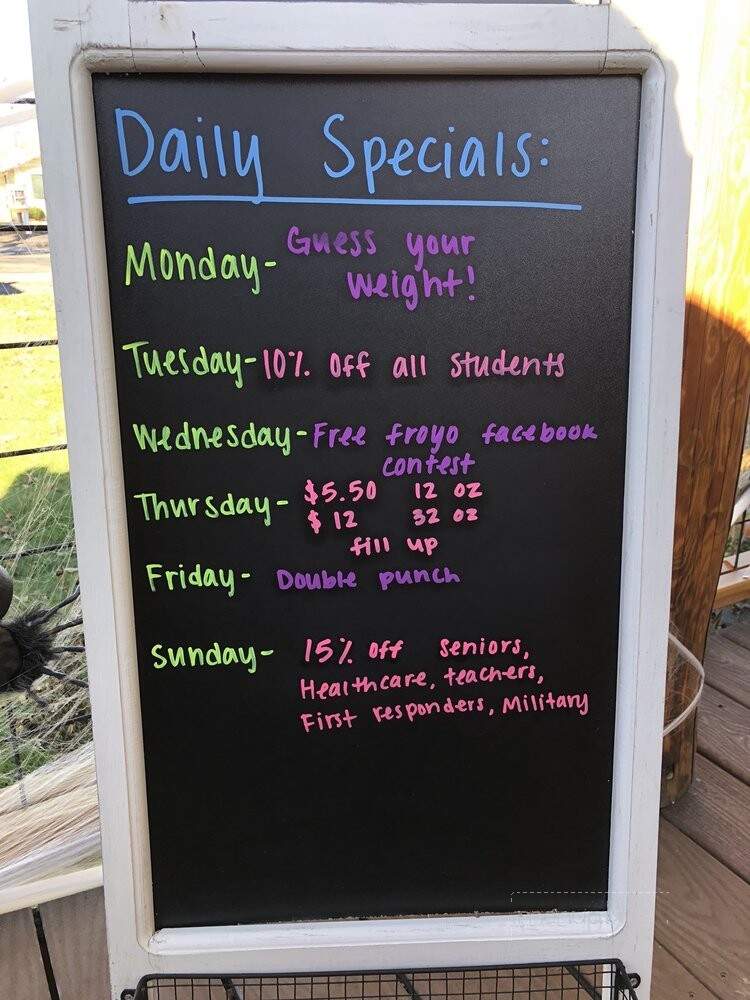 Daily Specials:
Monday- Guess your
weight!
Tuesday- 10% off all students
Wednesday- Free froyo facebook
contest
Thursday- $5.50 12 oz
$12 32 oz
fill up
Friday- Double punch
Sunday- 15% off seniors,
Healthcare, teachers,
First responders, Military